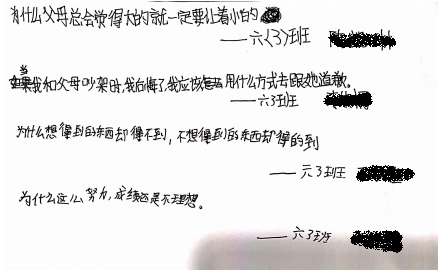 为什么父母总会觉得大的就一定要让着小的
——六〈3〉班
当我和父母吵架时,我后悔了,我应该用什么方式去跟她道歉。
——六3班
为什么想得到的东西却得不到,不想得到的东西却得的到
——六3班
为什么这么努力,成绩还是不理想。
——六3班